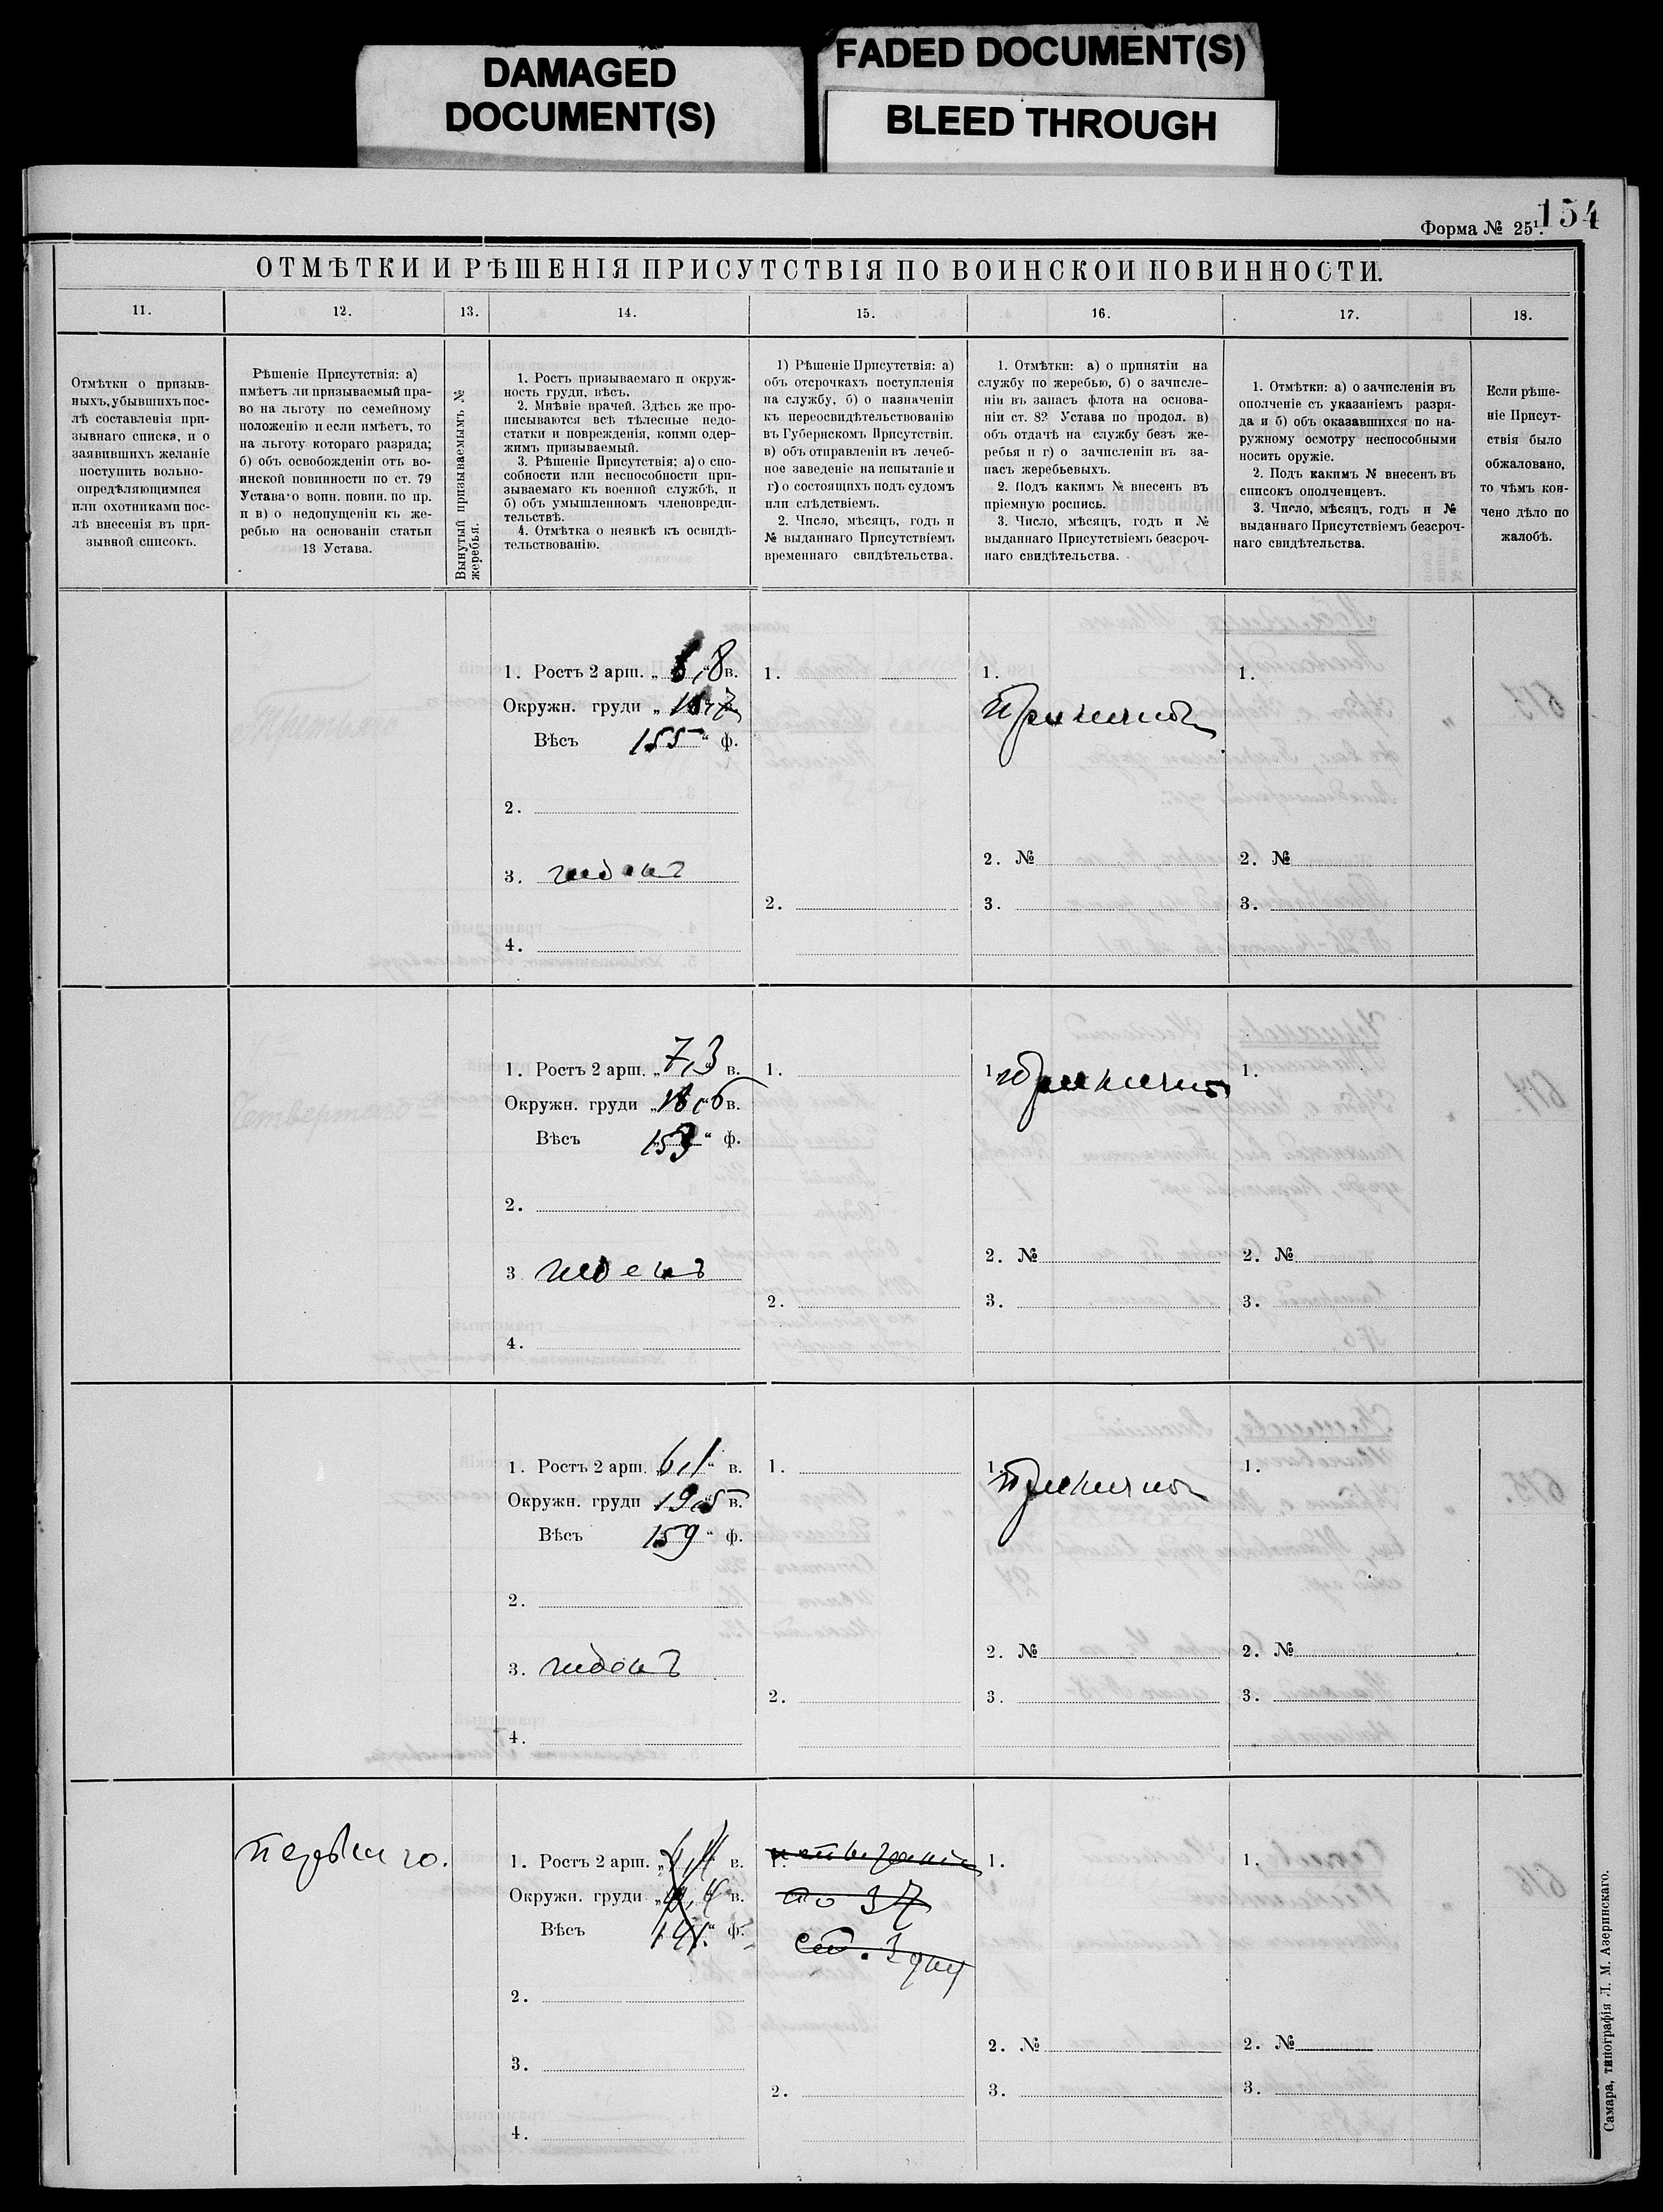 DAMAGED
DOCUMENT(S)
FADED DOCUMENT(S)
BLEED THROUGH
154
Форма № 25¹.
ОТМѢТКИ И РѢШЕНІЯ ПРИСУТСТВІЯ ПО ВОИНСКОИ ПОВИННОСТИ.
11. 12. 13. 14. 15. 16. 17. 18.
Отмѣтки о призыв-
ныхъ, убывшихъ пос-
лѣ составленія при-
зывнаго списка, и о
заявившихъ желаніе
поступить вольно-
опредѣляющимися
или охотниками пос-
лѣ внесенія въ при-
зывной списокъ.
Рѣшеніе Присутствія: а)
имѣетъ ли призываемый пра-
во на льготу по семейному
положенію и если имѣетъ, то
на льготу котораго разряда;
б) объ освобожденіи отъ во-
инской повинности по ст. 79
Устава о воин. повин. по пр.
и в) о недопущеніи къ же-
ребью на основаніи статьи
13 Устава.
Вынутый призываемымъ №
жеребья.
1. Ростъ призываемаго и окруж-
ность груди, вѣсъ.
2. Мнѣніе врачей. Здѣсь же про-
писываются всѣ тѣлесные недо-
статки и поврежденія, коими одер-
жимъ призываемый.
3. Рѣшеніе Присутствія; а) о спо-
собности или неспособности при-
зываемаго къ военной службѣ, и
б) объ умышленномъ членовреди-
тельствѣ.
4. Отмѣтка о неявкѣ къ освидѣ-
тельствованію.
1) Рѣшеніе Присутствія: а)
объ отсрочкахъ поступленія
на службу, б) о назначеніи
къ переосвидѣтельствованію
въ Губернскомъ Присутствіи.
в) объ отправленіи въ лечеб-
ное заведеніе на испытаніе и
г) о состоящихъ подъ судомъ
или слѣдствіемъ.
2. Число, мѣсяцъ, годъ и
№ выданнаго Присутствіемъ
временнаго свидѣтельства.
1. Отмѣтки: а) о принятіи на
службу по жеребью, б) о зачисле-
ніи въ запасъ флота на основа-
ніи ст. 82 Устава по продол. в)
объ отдачѣ на службу безъ же-
ребья и г) о зачисленіи въ за-
пасъ жеребьевыхъ.
2. Подъ какимъ № внесенъ въ
пріемную роспись.
3. Число, мѣсяцъ, годъ и №
выданнаго Присутствіемъ безсроч-
наго свидѣтельства.
1. Отмѣтки: а) о зачисленіи въ
ополченіе съ указаніемъ разря-
да и б) объ оказавшихся по на-
ружному осмотру неспособными
носить оружіе.
2. Подъ какимъ № внесенъ въ
списокъ ополченцевъ.
3. Число, мѣсяцъ, годъ и №
выданнаго Присутствіемъ безсроч-
наго свидѣтельства.
Если рѣше-
ніе Присут-
ствія было
обжаловано,
то чѣмъ кон-
чено дѣло по
жалобѣ.
1. Ростъ 2 арш. „ 6,8 в. 1. 1. 1.
Окружн. груди „
Принятъ
Вѣсъ 155 ф.
2.
2. № 2. №
3. годенъ
2. 3. 3.
4.
1. Ростъ 2 арш. „ 7,3 в. 1. 1. Принятъ 1.
Окружн. груди „ 18,6 в.
Вѣсъ 153 ф.
2.
2. № 2. №
3 годенъ
2. 3. 3.
4.
1. Ростъ 2 арш. 6,1 в. 1. 1. Принятъ 1.
Окружн. груди 19,5 в.
Вѣсъ 159 ф.
2.
2. № 2. №
3. годенъ
2. 3. 3.
4.
Первыго.
1. Ростъ 2 арш. „ в. 1. 1. 1.
Окружн. груди „ в. по 37
Вѣсъ 141 ф. ст.
2.
2. № 2. №
3.
2. 3. 3.
4.
Самара, типографія Л. М. Азеринскаго.